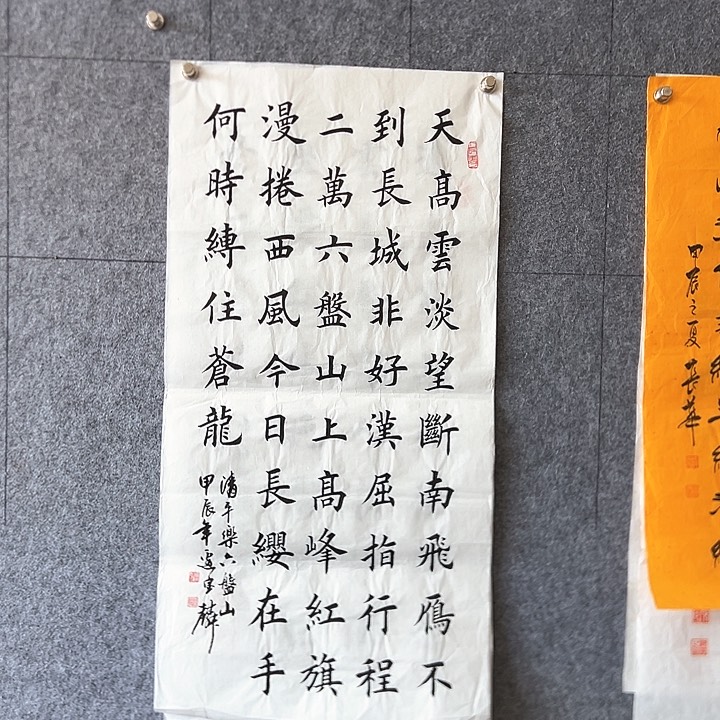 天高雲淡望斷南飛鴈不
到長城非好漢屈指行程
二萬六盤山上高峰紅旗
漫捲西風今日長纓在手
何時縛住蒼龍
清平樂六盤山
甲辰年
甲辰之夏